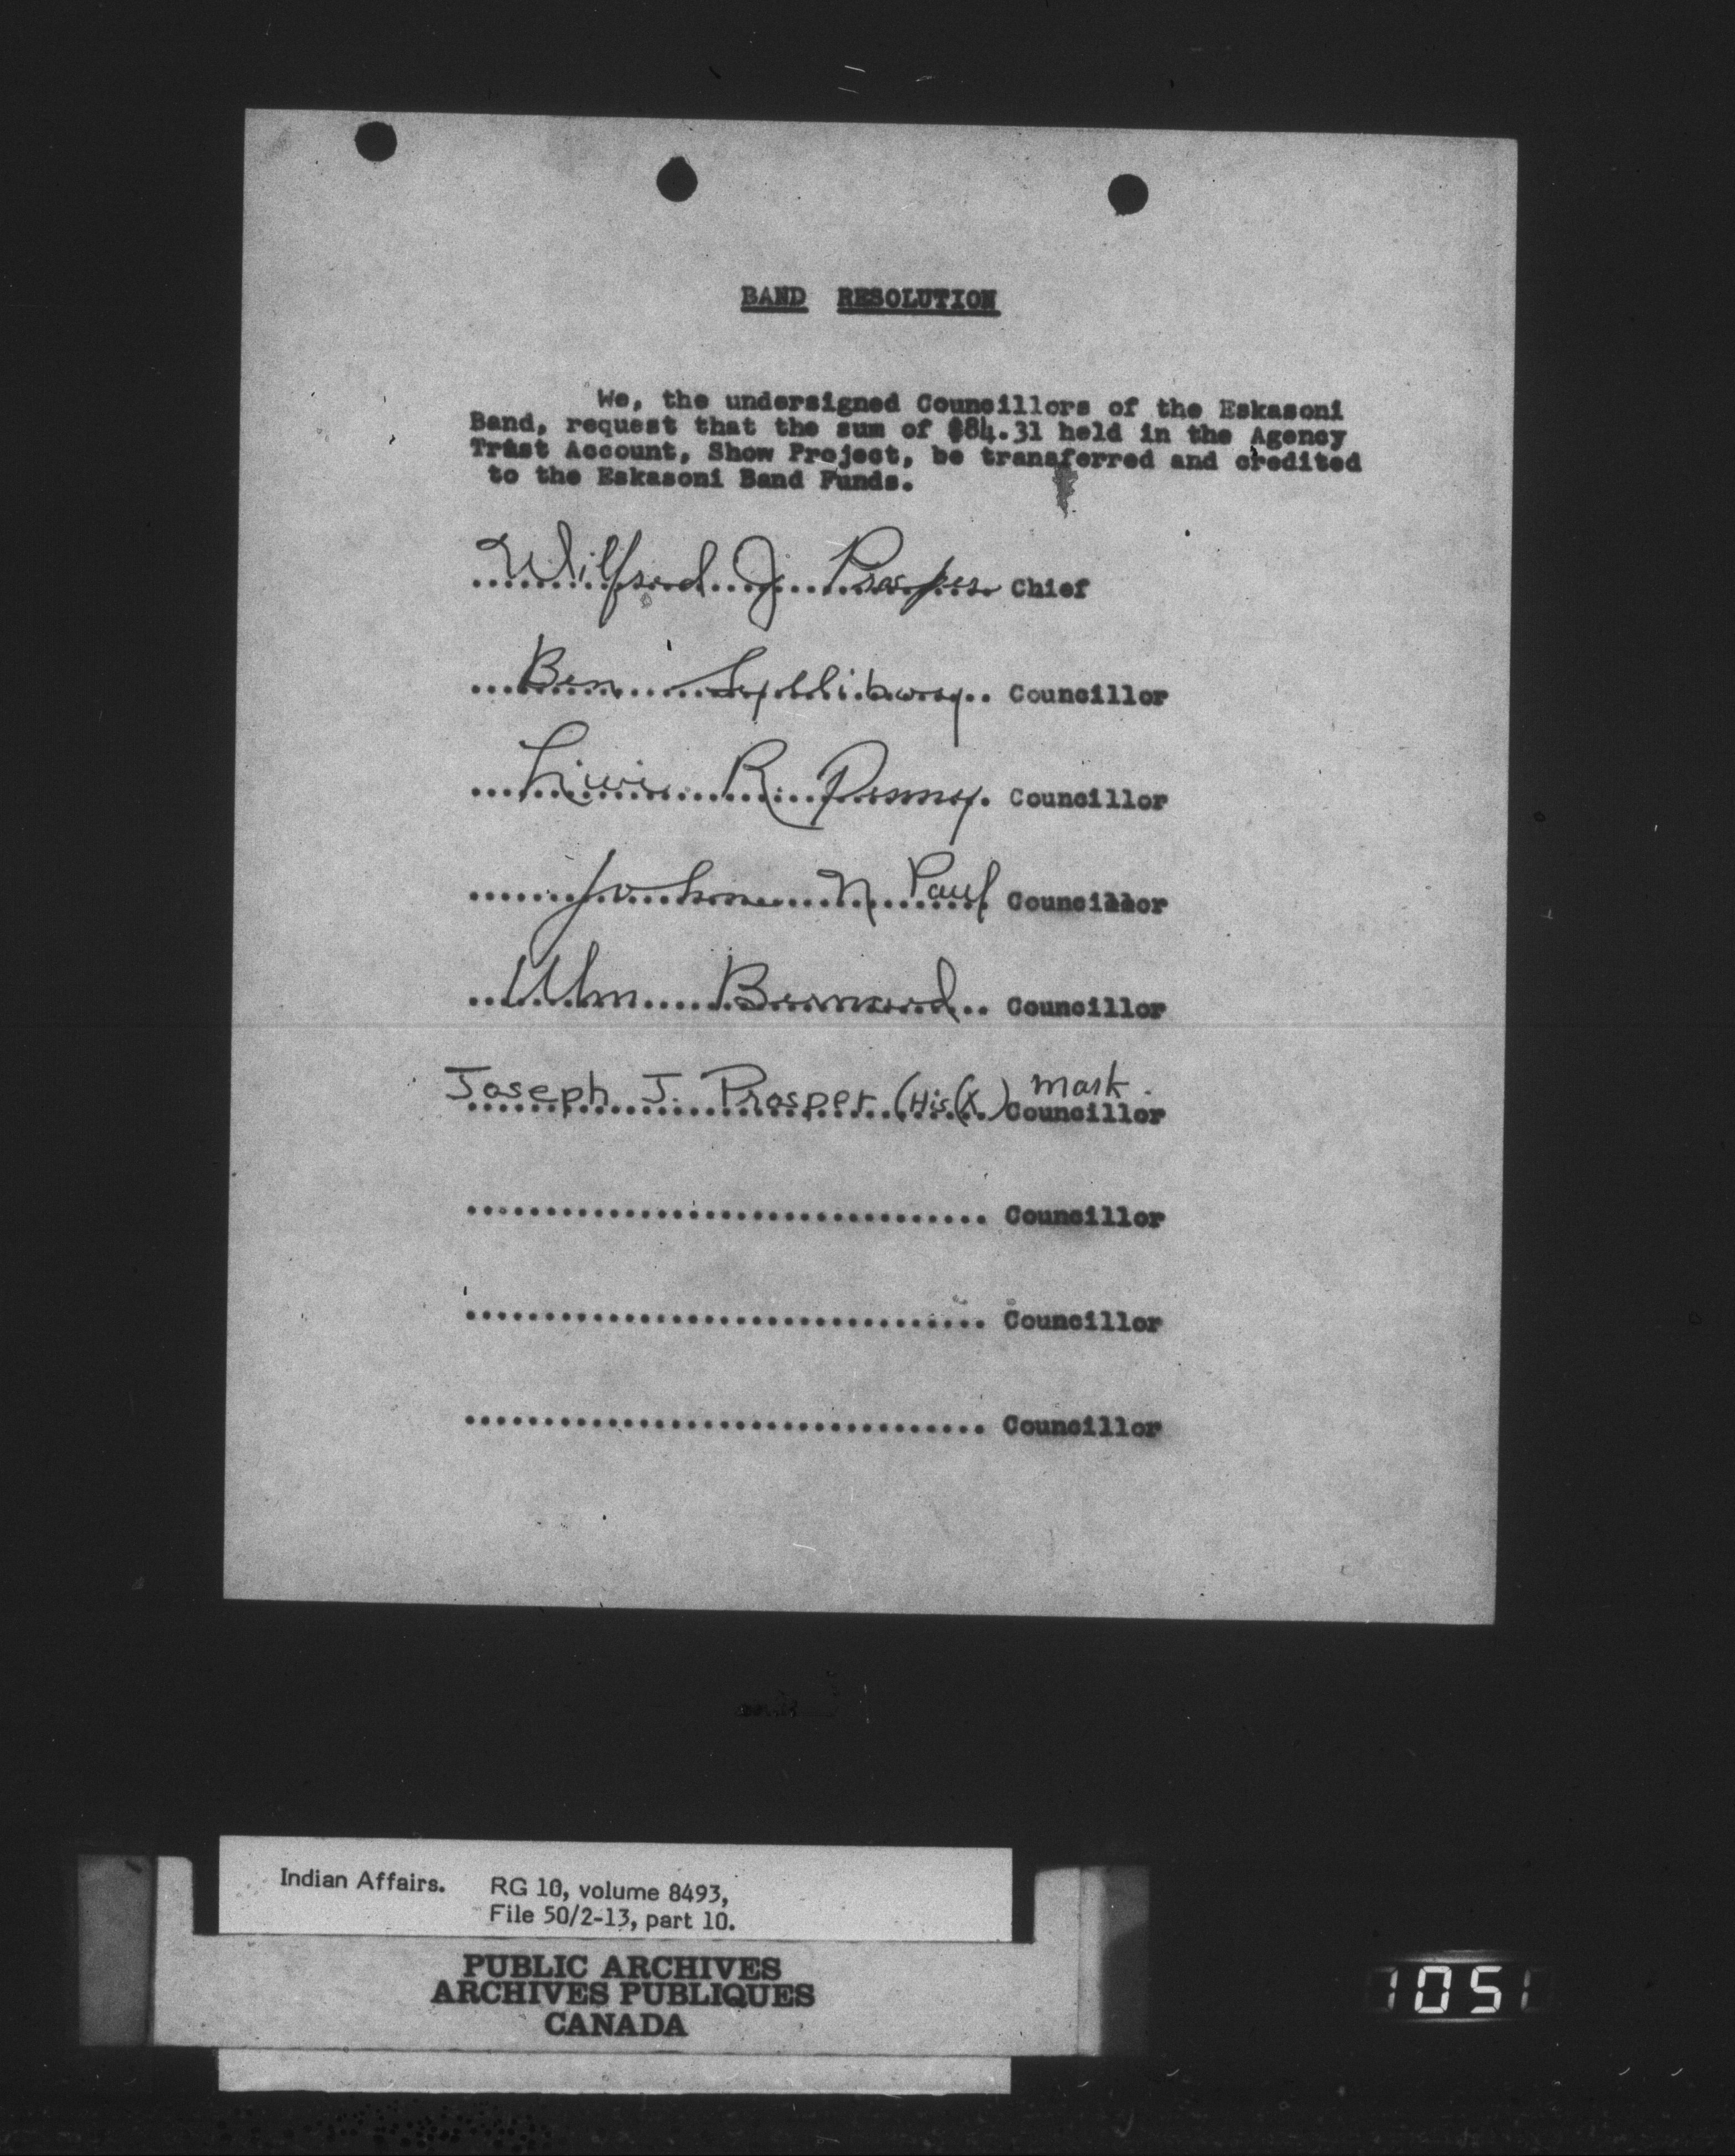 BAND RESOLUTION
We, the undersigned Councillors of the Eskasoni
Band, request that the sum of $84.31 held in the Agency
Trust Account, Show Project, be transferred and credited
to the Eskasoni Band Funds.
Wilfred J. Prosper Chief
Ben Councillor
R. Denny Councillor
John N Paul Councillor
Wm Bernard Councillor
Joseph J. Prosper (His (X) mark.
Councillor
Councillor
Councillor
Councillor
Indian Affairs. RG 10, volume 8493,
File 50/2-13, part 10.
PUBLIC ARCHIVES
ARCHIVES PUBLIQUES
CANADA
1051